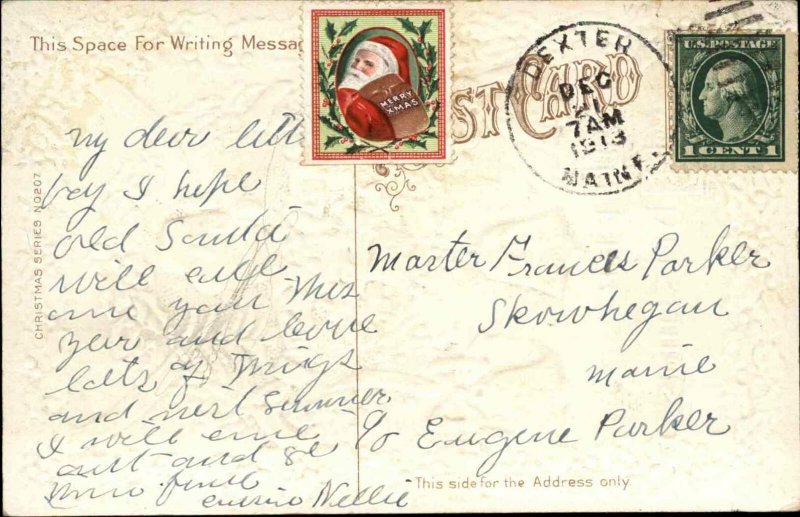 This Space For Writing Messa
MERRY
XMAS
ST CARD
DEXTER
DEC
21
7AM
1913
MAINE.
U.S. POSTAGE
1 CENT 1
CHRISTMAS SERIES NO 207
my dear litt
boy I hope
old Santa
will call
one you this
year and leave
lotts of things
and next Summer
I will come
out and se
fine
Nellie
Master Francis Parker
Skowhegan
Maine
c/o Eugene Parker
This side for the Address only.